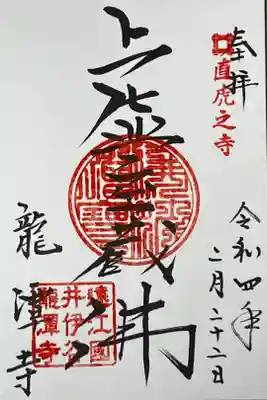 奉拝
直虎之寺
令和四年
二月二十二日
虚空蔵佛
遠江國
井伊谷
龍潭寺
龍潭寺